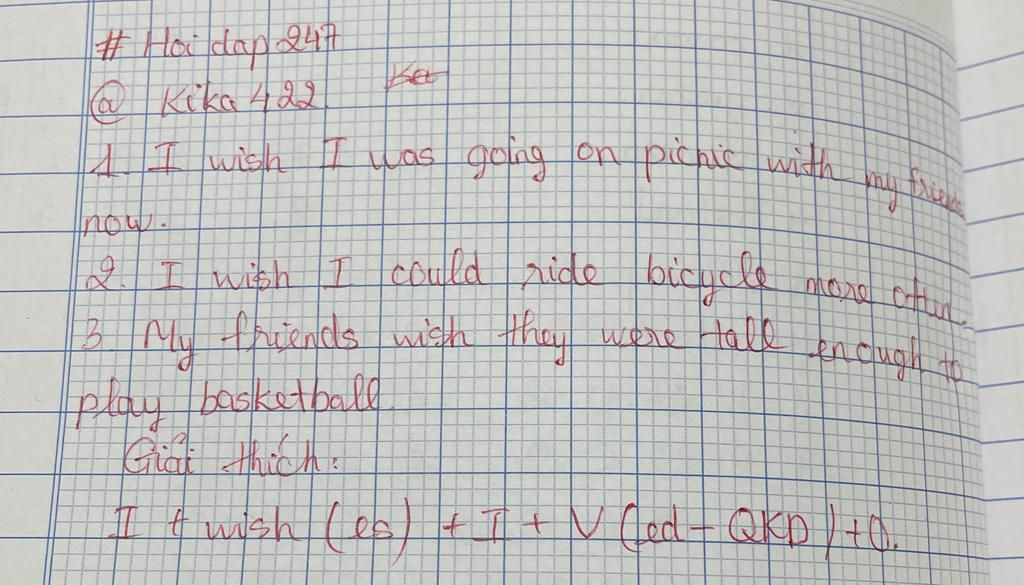 # Hoi dap 247
@ Kika 422
1. I wish I was going on pichic with my friends
now.
2. I wish I could ride bicycle more often.
3. My friends wish they were tall enough to
play basketball
Giải thích:
I + wish (es) + I + V (ed - QKD) + O.